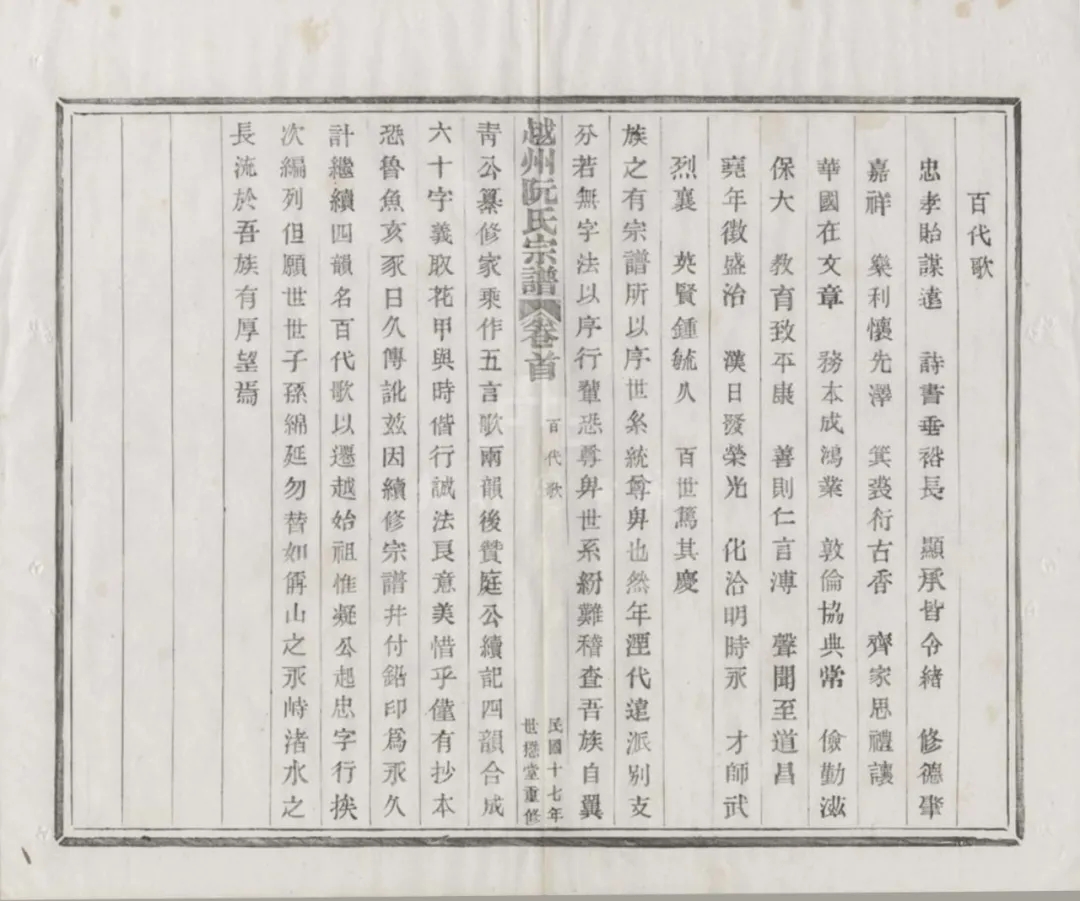 百代歌
忠孝貽謀遠　詩書垂裕長　顯承皆令緒　修德肇
嘉祥　樂利懷先澤　箕裘衍古香　齊家思禮讓
華國在文章　務本成鴻業　敦倫協典常　儉勤滋
保大　教育致平康　善則仁言溥　聲聞至道昌
堯年徵盛治　漢日發榮光　化洽明時永　才師武
烈襄　英賢鍾毓久　百世篤其慶
族之有宗譜所以序世系統尊卑也然年湮代遠派別支
分若無字法以序行輩恐尊卑世系紛難稽查吾族自翼
越州阮氏宗譜　卷首　百代歌
民國十七年
世懋堂重修
青公纂修家乘作五言歌兩韻後贊庭公續記四韻合成
六十字義取花甲與時偕行誠法良意美惜乎僅有抄本
恐魯魚亥豕日久傳訛茲因續修宗譜并付鉛印為永久
計繼續四韻名百代歌以遷越始祖惟凝公起忠字行挨
次編列但願世世子孫綿延勿替如稱山之永峙渚水之
長流於吾族有厚望焉